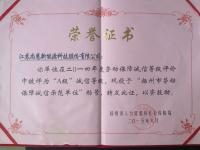 荣誉证书
江苏尚慧新能源科技股份有限公司:
你单位在二〇一四年度劳动保障诚信等级评价
中被评为“A级”诚信等级，现授予“扬州市劳动
保障诚信示范单位”称号，特发此证，以资鼓励。
扬州市人力资源和社会保障局
二〇一五年